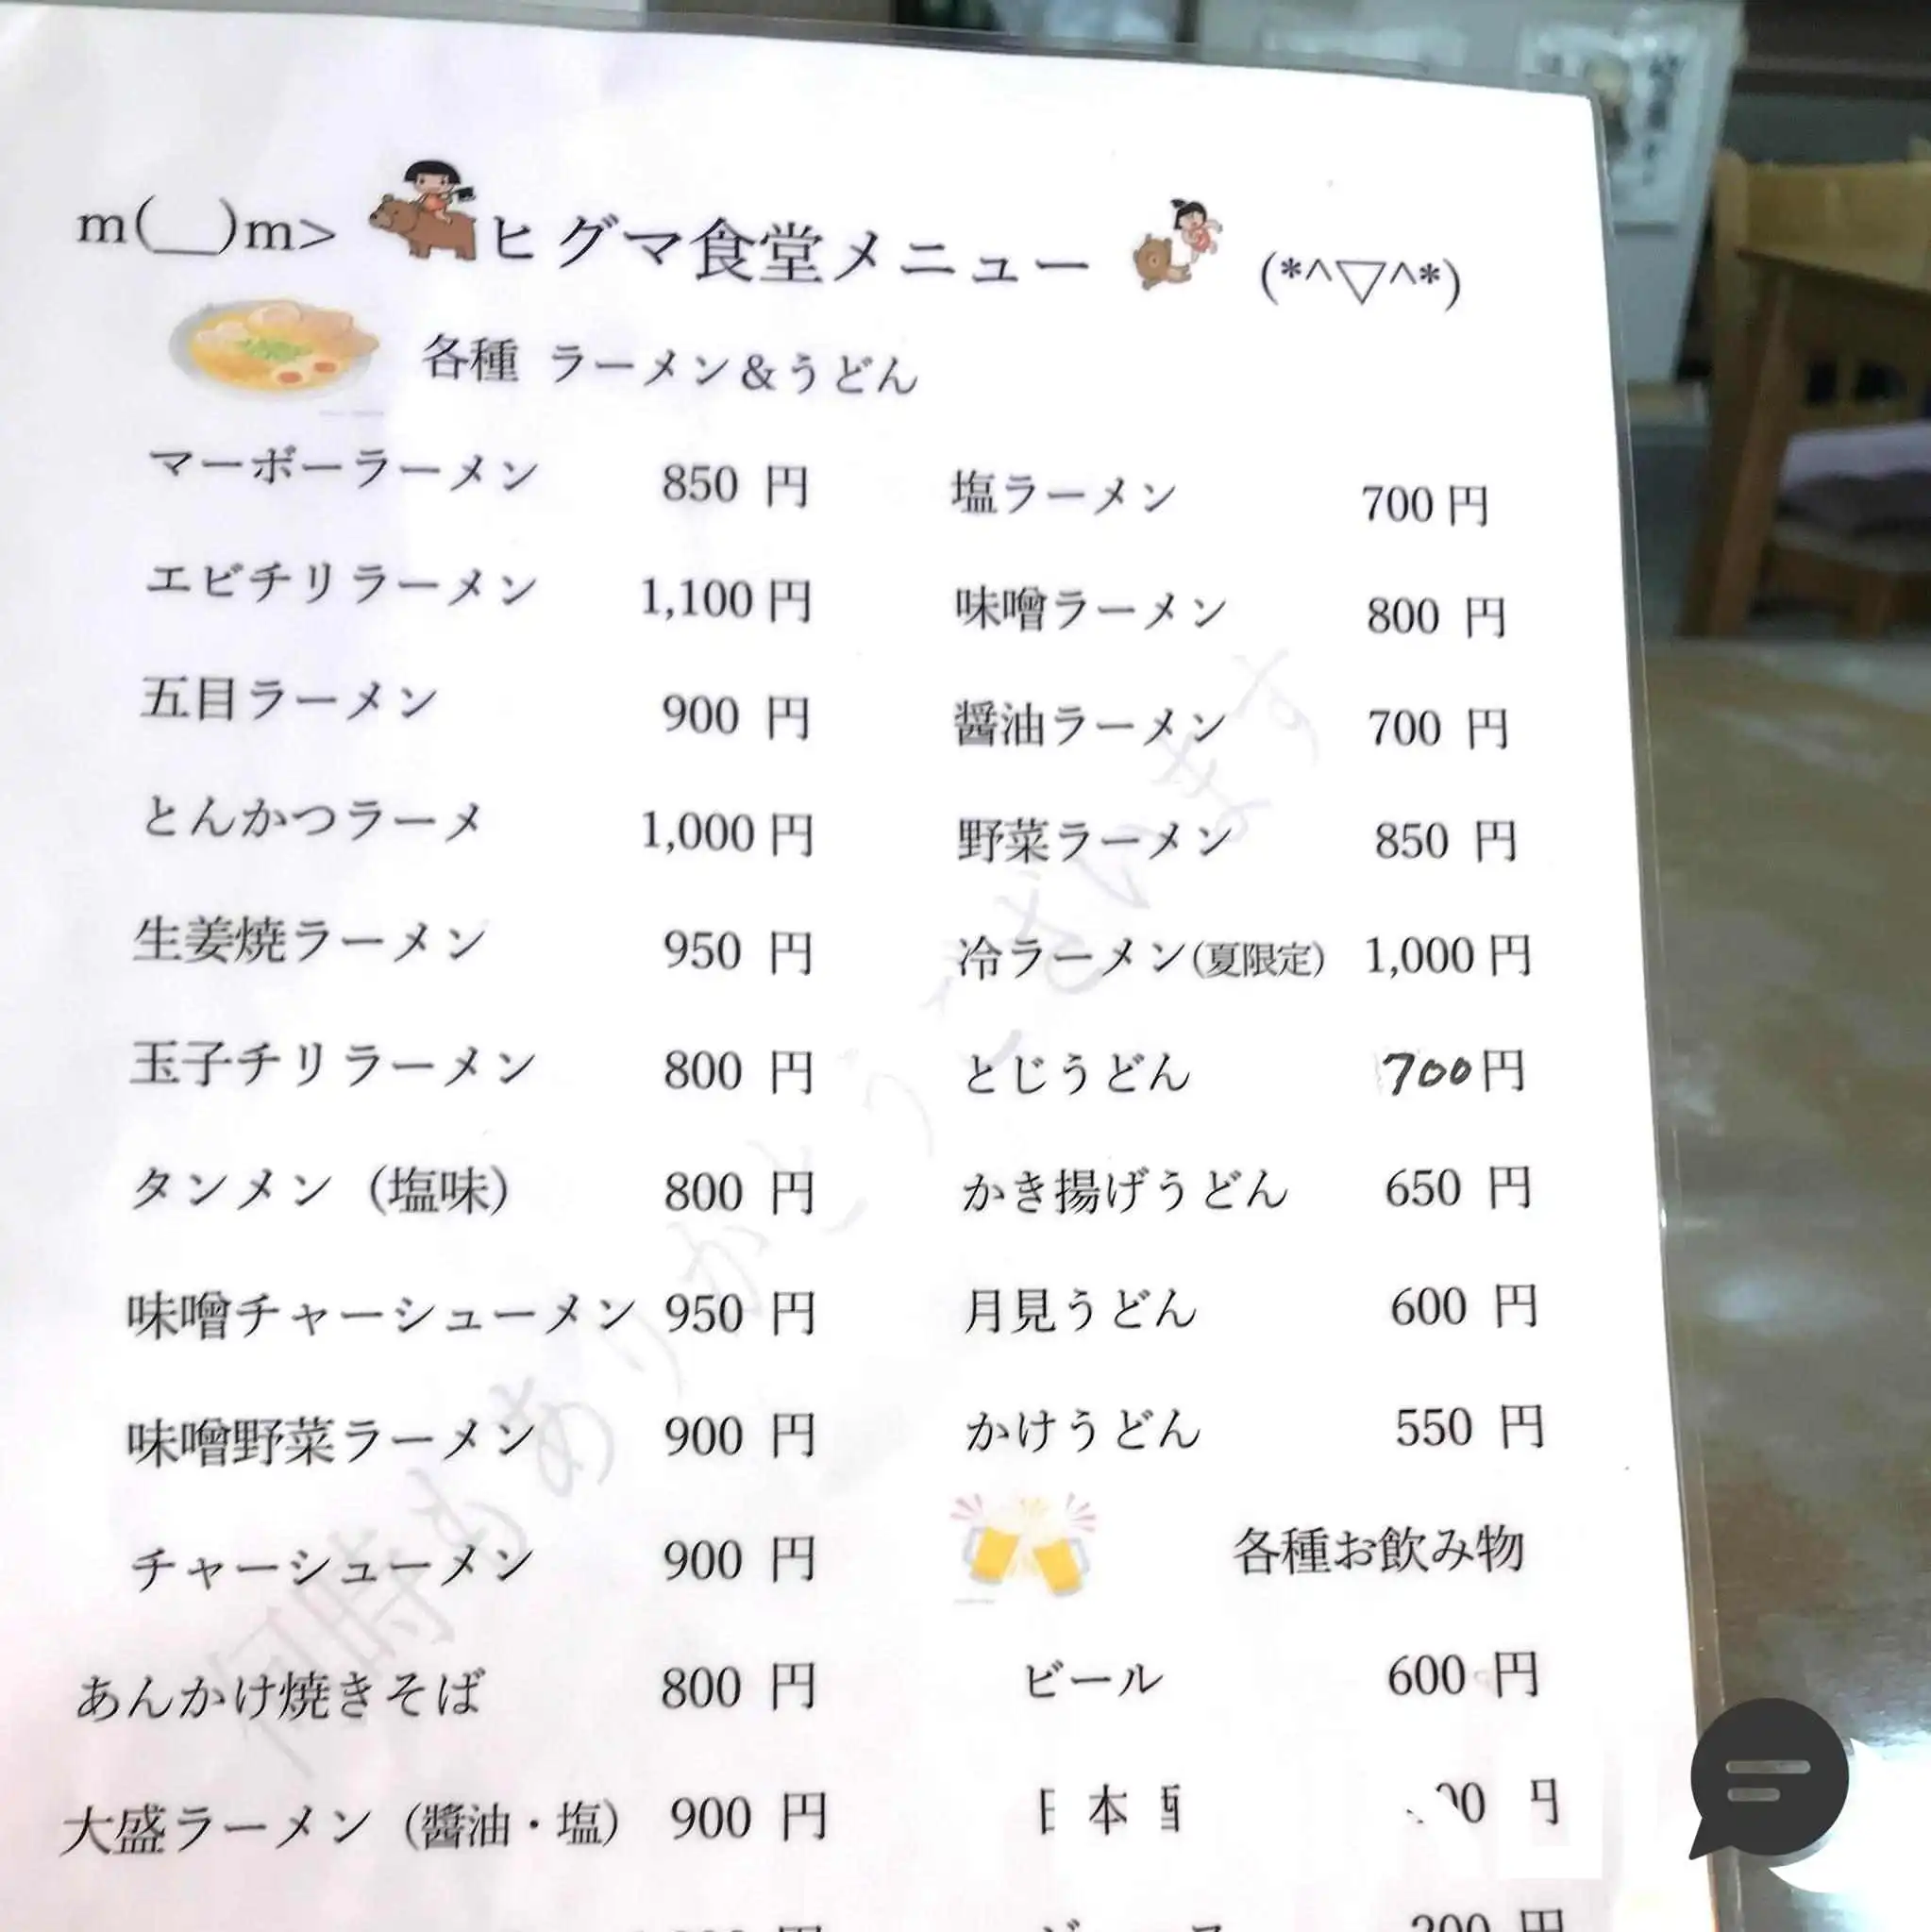 m(__)m>
ヒグマ食堂メニュー
(*^▽^*)
各種 ラーメン＆うどん
マーボーラーメン 850 円
エビチリラーメン 1,100 円
五目ラーメン 900 円
とんかつラーメ 1,000 円
生姜焼ラーメン 950 円
玉子チリラーメン 800 円
タンメン（塩味） 800 円
味噌チャーシューメン 950 円
味噌野菜ラーメン 900 円
チャーシューメン 900 円
あんかけ焼きそば 800 円
大盛ラーメン（醬油・塩） 900 円
塩ラーメン 700 円
味噌ラーメン 800 円
醤油ラーメン 700 円
野菜ラーメン 850 円
冷ラーメン(夏限定) 1,000 円
とじうどん 700円
かき揚げうどん 650 円
月見うどん 600 円
かけうどん 550 円
各種お飲み物
ビール 600 円
何時もありがとうございます